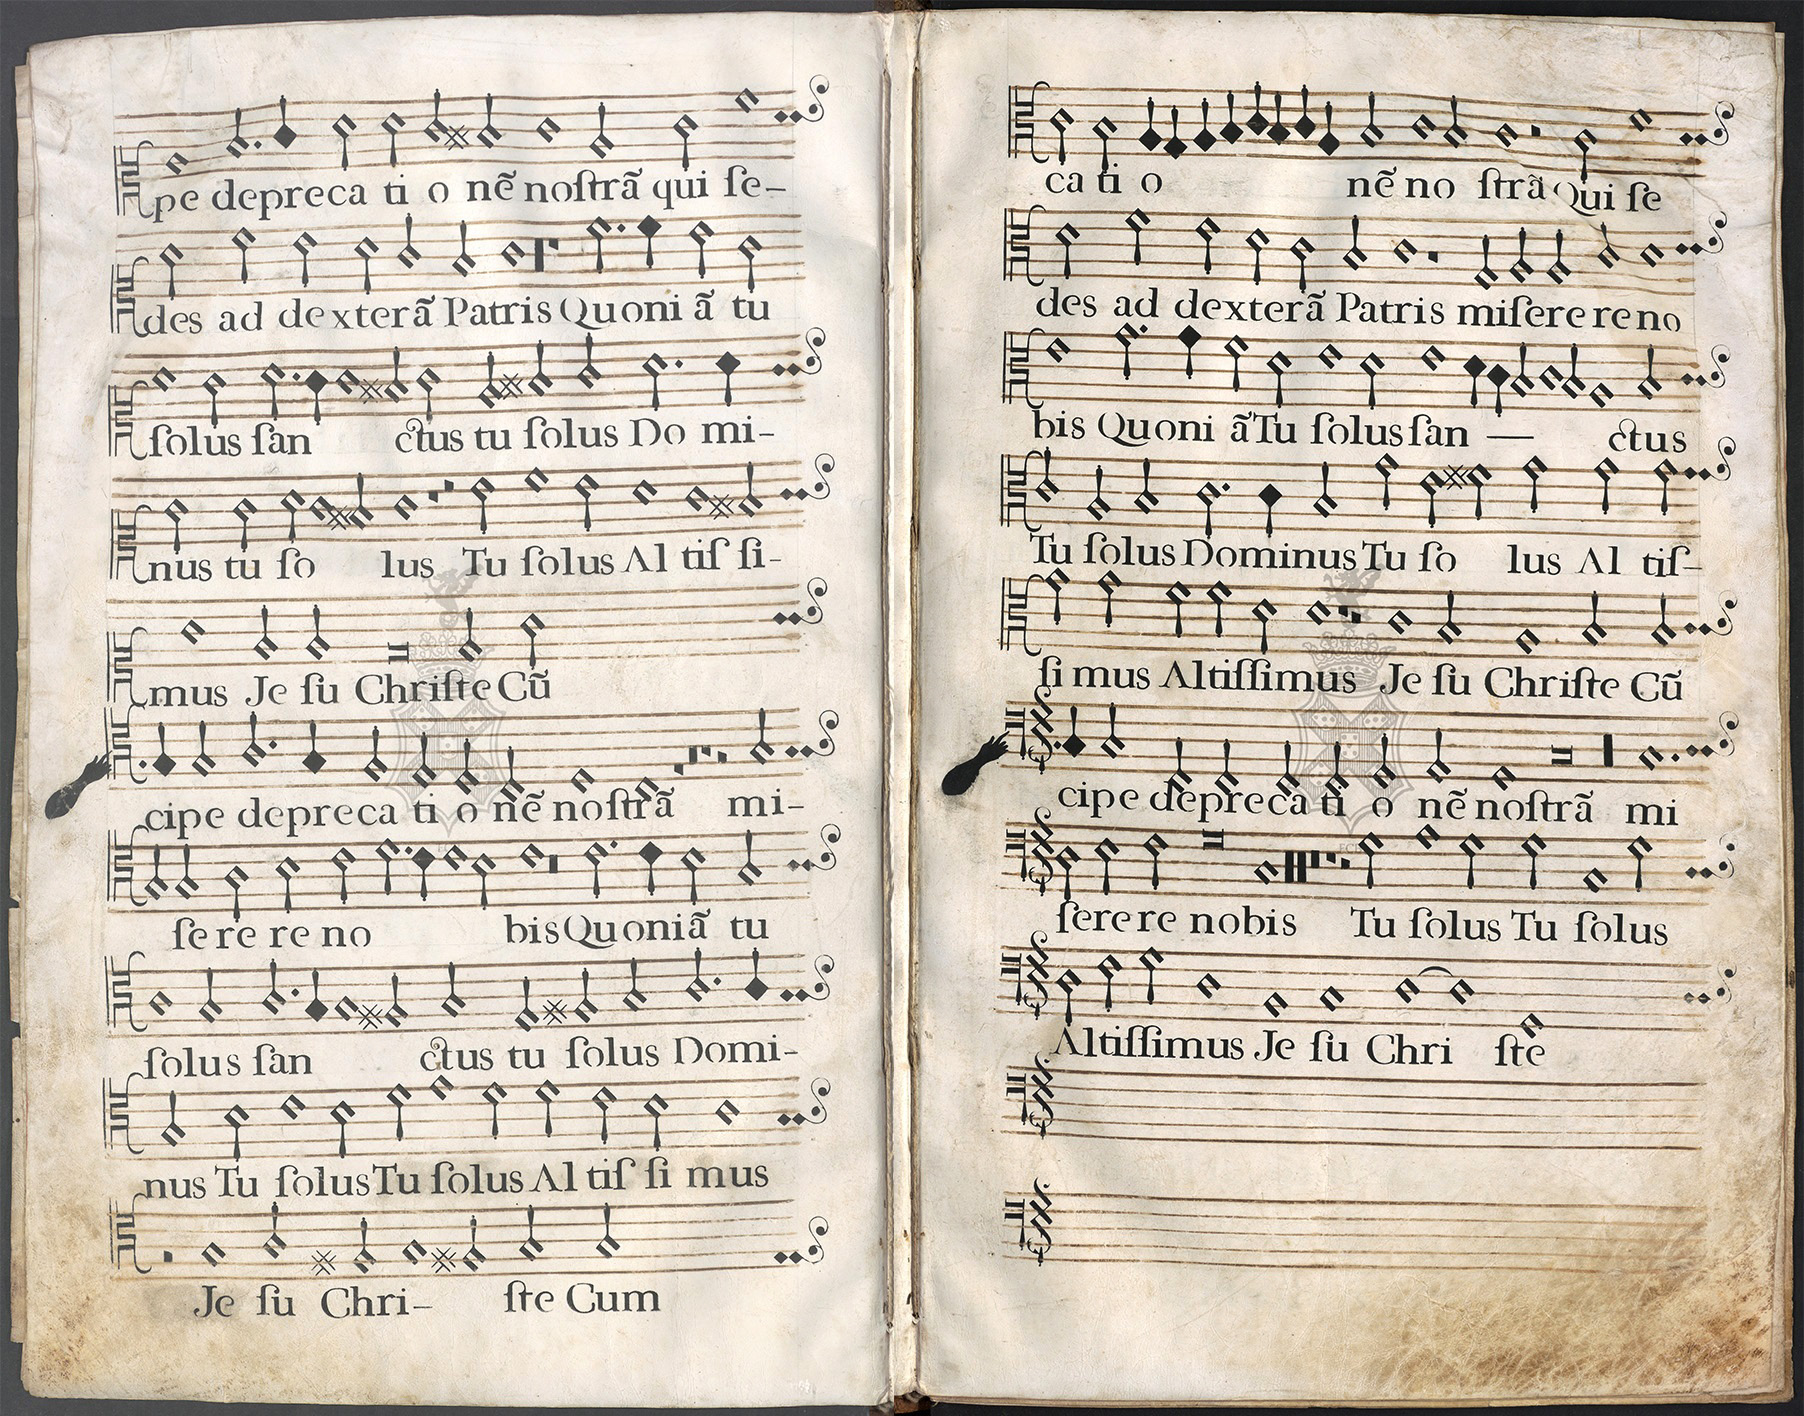 pe depreca ti o nẽ noſtrã qui ſe-
des ad dexterã Patris Quoni ã tu
ſolus ſan ctus tu ſolus Do mi-
nus tu ſo lus Tu ſolus Al tiſ ſi-
mus Je ſu Chriſte Cũ
cipe depreca ti o nẽ noſtrã mi-
ſe re re no bis Quoniã tu
ſolus ſan ctus tu ſolus Domi-
nus Tu ſolus Tu ſolus Al tiſ ſi mus
Je ſu Chri- ſte Cum
ca ti o nẽ no ſtrã Qui ſe
des ad dexterã Patris miſere re no
bis Quoni ã Tu ſolus ſan — ctus
Tu ſolus Dominus Tu ſo lus Al tiſ-
ſi mus Altiſſimus Je ſu Chriſte Cũ
cipe depreca ti o nẽ noſtrã mi
ſere re nobis Tu ſolus Tu ſolus
Altiſſimus Je ſu Chri ſte